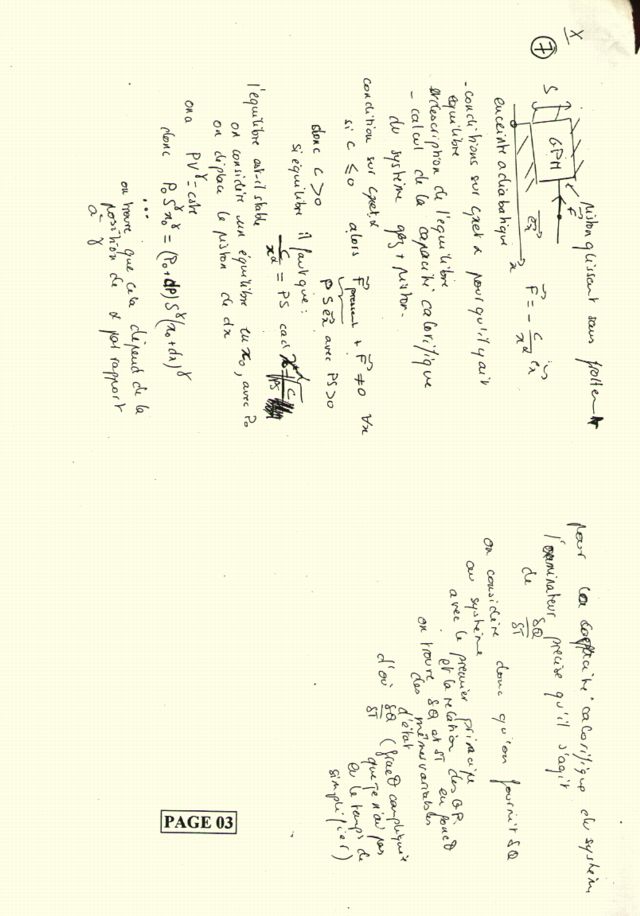 X
7
piston glissant sans frottemt
GPM
S
F
ex
x
enceinte adiabatique
F = - C/x^α ex
- conditions sur C et α pour qu'il y ait
équilibre
description de l'équilibre
- calcul de la capacité calorifique
du système gaz + piston.
condition sur C et α
si C ≤ 0 alors F pressant + F ≠ 0 ∀x
PS ex avec PS>0
donc C > 0
si équilibre il faut que :
C/x^α = PS cad
l'équilibre est-il stable
on considère un équilibre en x0, avec P0
on déplace le piston de dx
on a PV^γ = cste
donc P0 S^γ x0^γ = (P0 + dP) S^γ (x0 + dx)^γ
...
on trouve que cela dépend de la
position de α par rapport
à γ
pour la capacité calorifique du système,
l'examinateur précise qu'il s'agit
de δQ/δT
on considère donc qu'on fournit δQ
au système
avec le premier principe
et la relation des GP.
on trouve δQ et δT en fonct°
des mêmes variables
d'état
d'où δQ/δT (fract° compliquée
que je n'ai pas
eu le temps de
simplifier)
PAGE 03